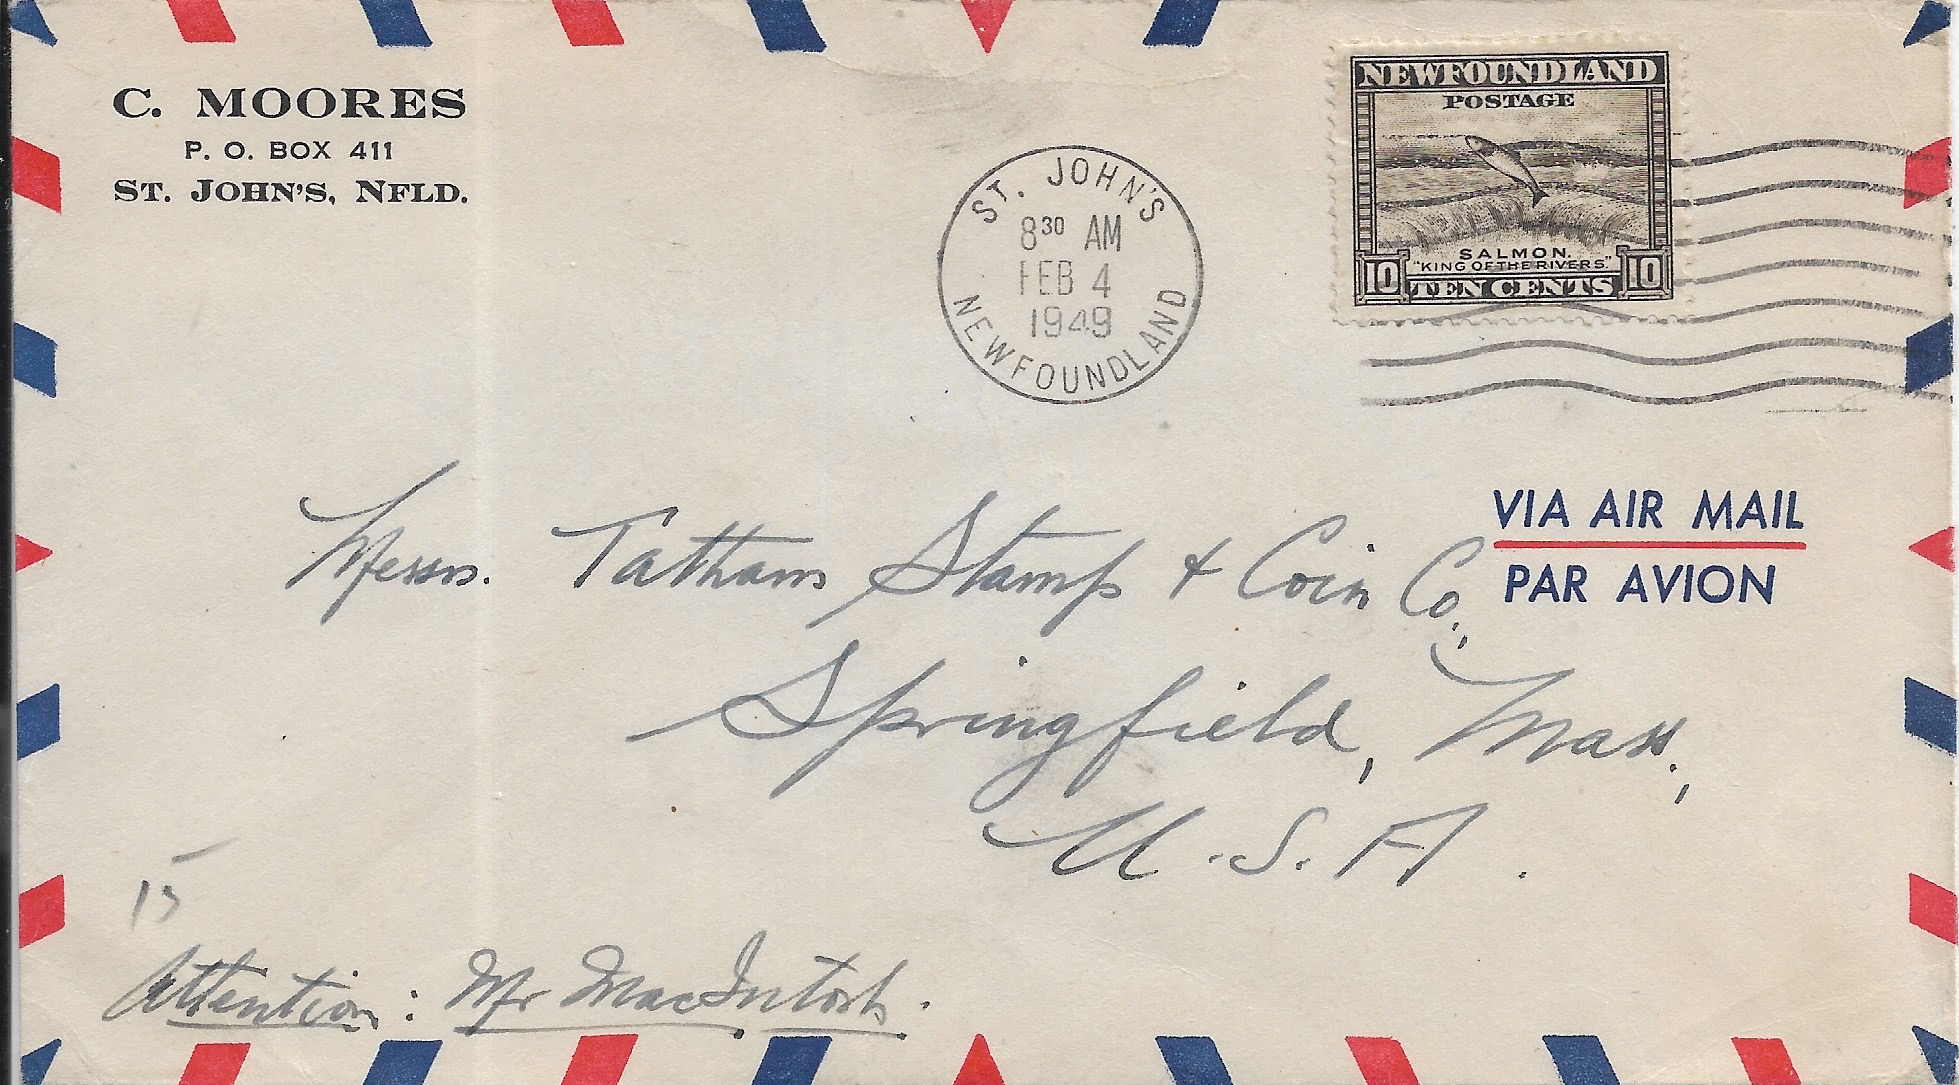 C. MOORES
P. O. BOX 411
ST. JOHN'S, NFLD.
ST. JOHN'S
8 30 AM
FEB 4
1949
NEWFOUNDLAND
NEWFOUNDLAND
POSTAGE
SALMON.
"KING OF THE RIVERS."
10 TEN CENTS 10
VIA AIR MAIL
PAR AVION
Messrs. Tatham Stamp & Coin Co.,
Springfield, Mass.,
U.S.A.
15
Attention: Mr MacIntosh.